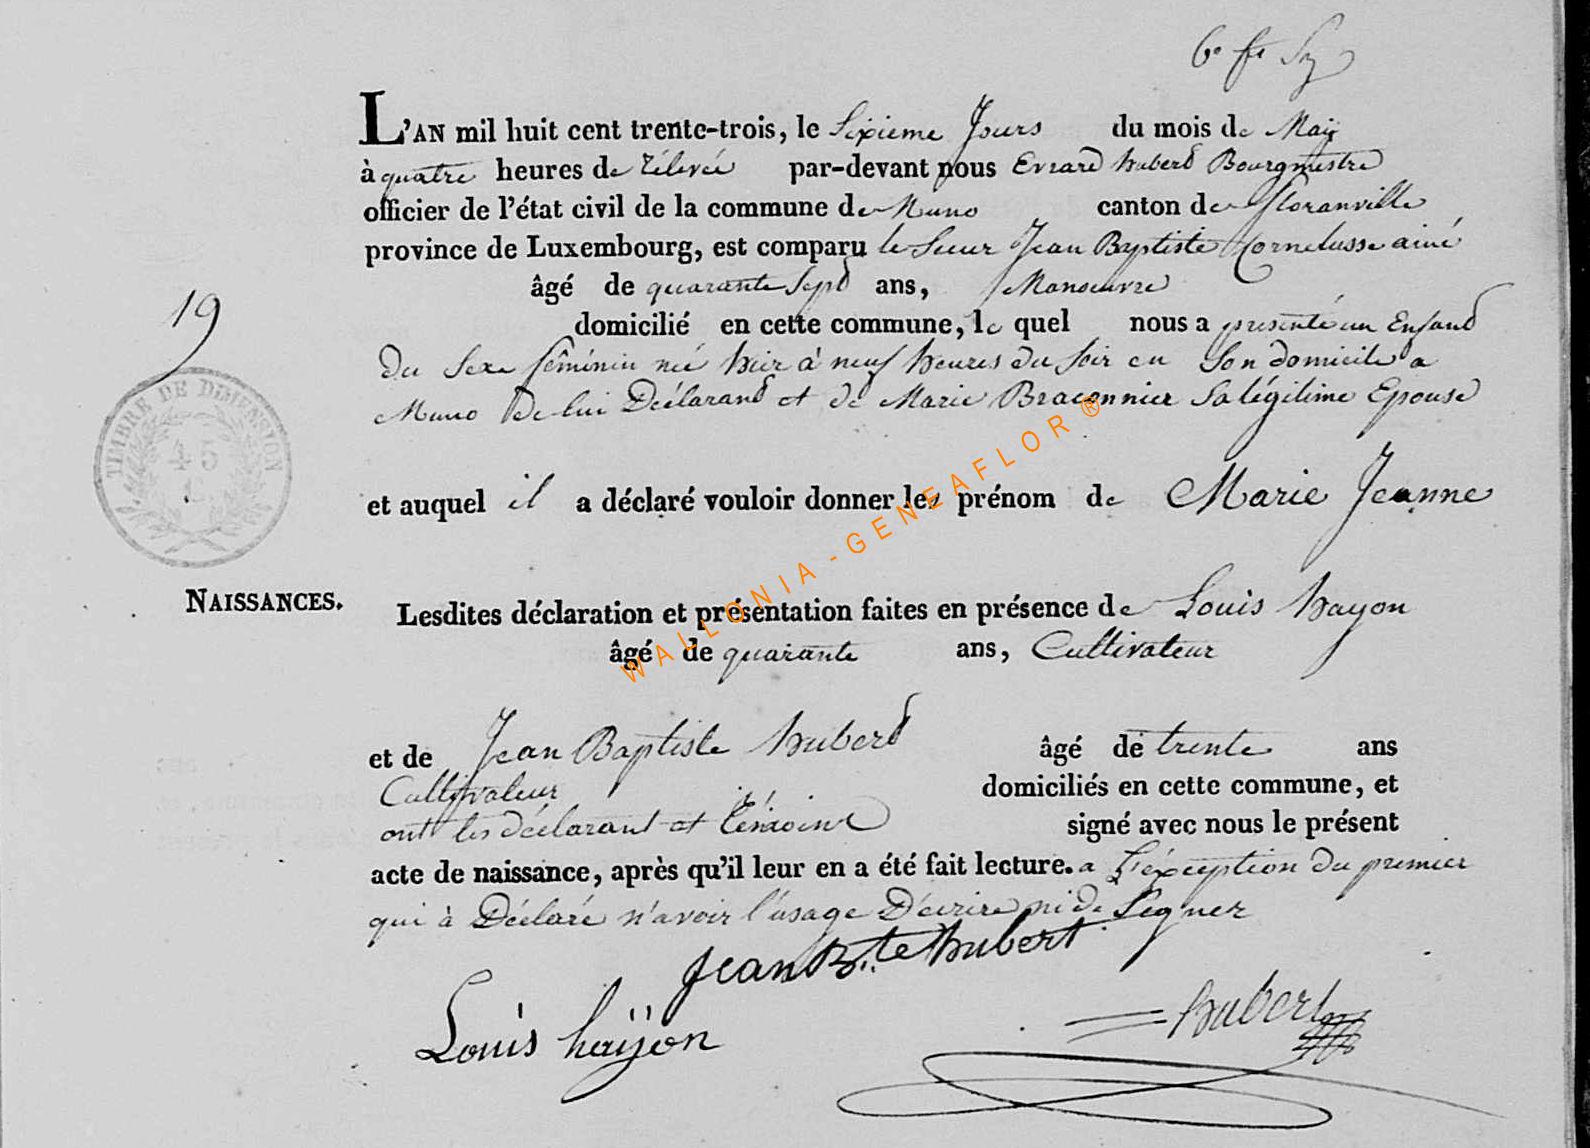 6e ft
L'AN mil huit cent trente-trois, le Sixieme Jours du mois de Maÿ
à quatre heures de rélevée par-devant nous Evrard hubert Bourgmestre
officier de l'état civil de la commune de Muno canton de floranville
province de Luxembourg, est comparu le Sieur Jean Baptiste Cornelusse ainé
âgé de quarante Sept ans, Manoeuvre
19
domicilié en cette commune, le quel nous a presenté un Enfant
du Sexe féminin neé hier à neuf heures du Soir en Son domicile a
Muno de lui Déclarant et de Marie Braconnier Sa légitime Epouse
TIMBRE DE DIMENSION
45
et auquel il a déclaré vouloir donner les prénom de Marie Jeanne
NAISSANCES.
Lesdites déclaration et présentation faites en présence de Louis hayon
âgé de quarante ans, Cultivateur
WALLONIA - GENEAFLOR ®
et de Jean Baptiste hubert âgé de trente ans
Cultivateur domiciliés en cette commune, et
ont les déclarant et témoins signé avec nous le présent
acte de naissance, après qu'il leur en a été fait lecture. a L'éxception du premier
qui à Déclaré n'avoir l'usage D'ecrire ni de Signer
Jean B.te hubert
Louis haÿon
hubert